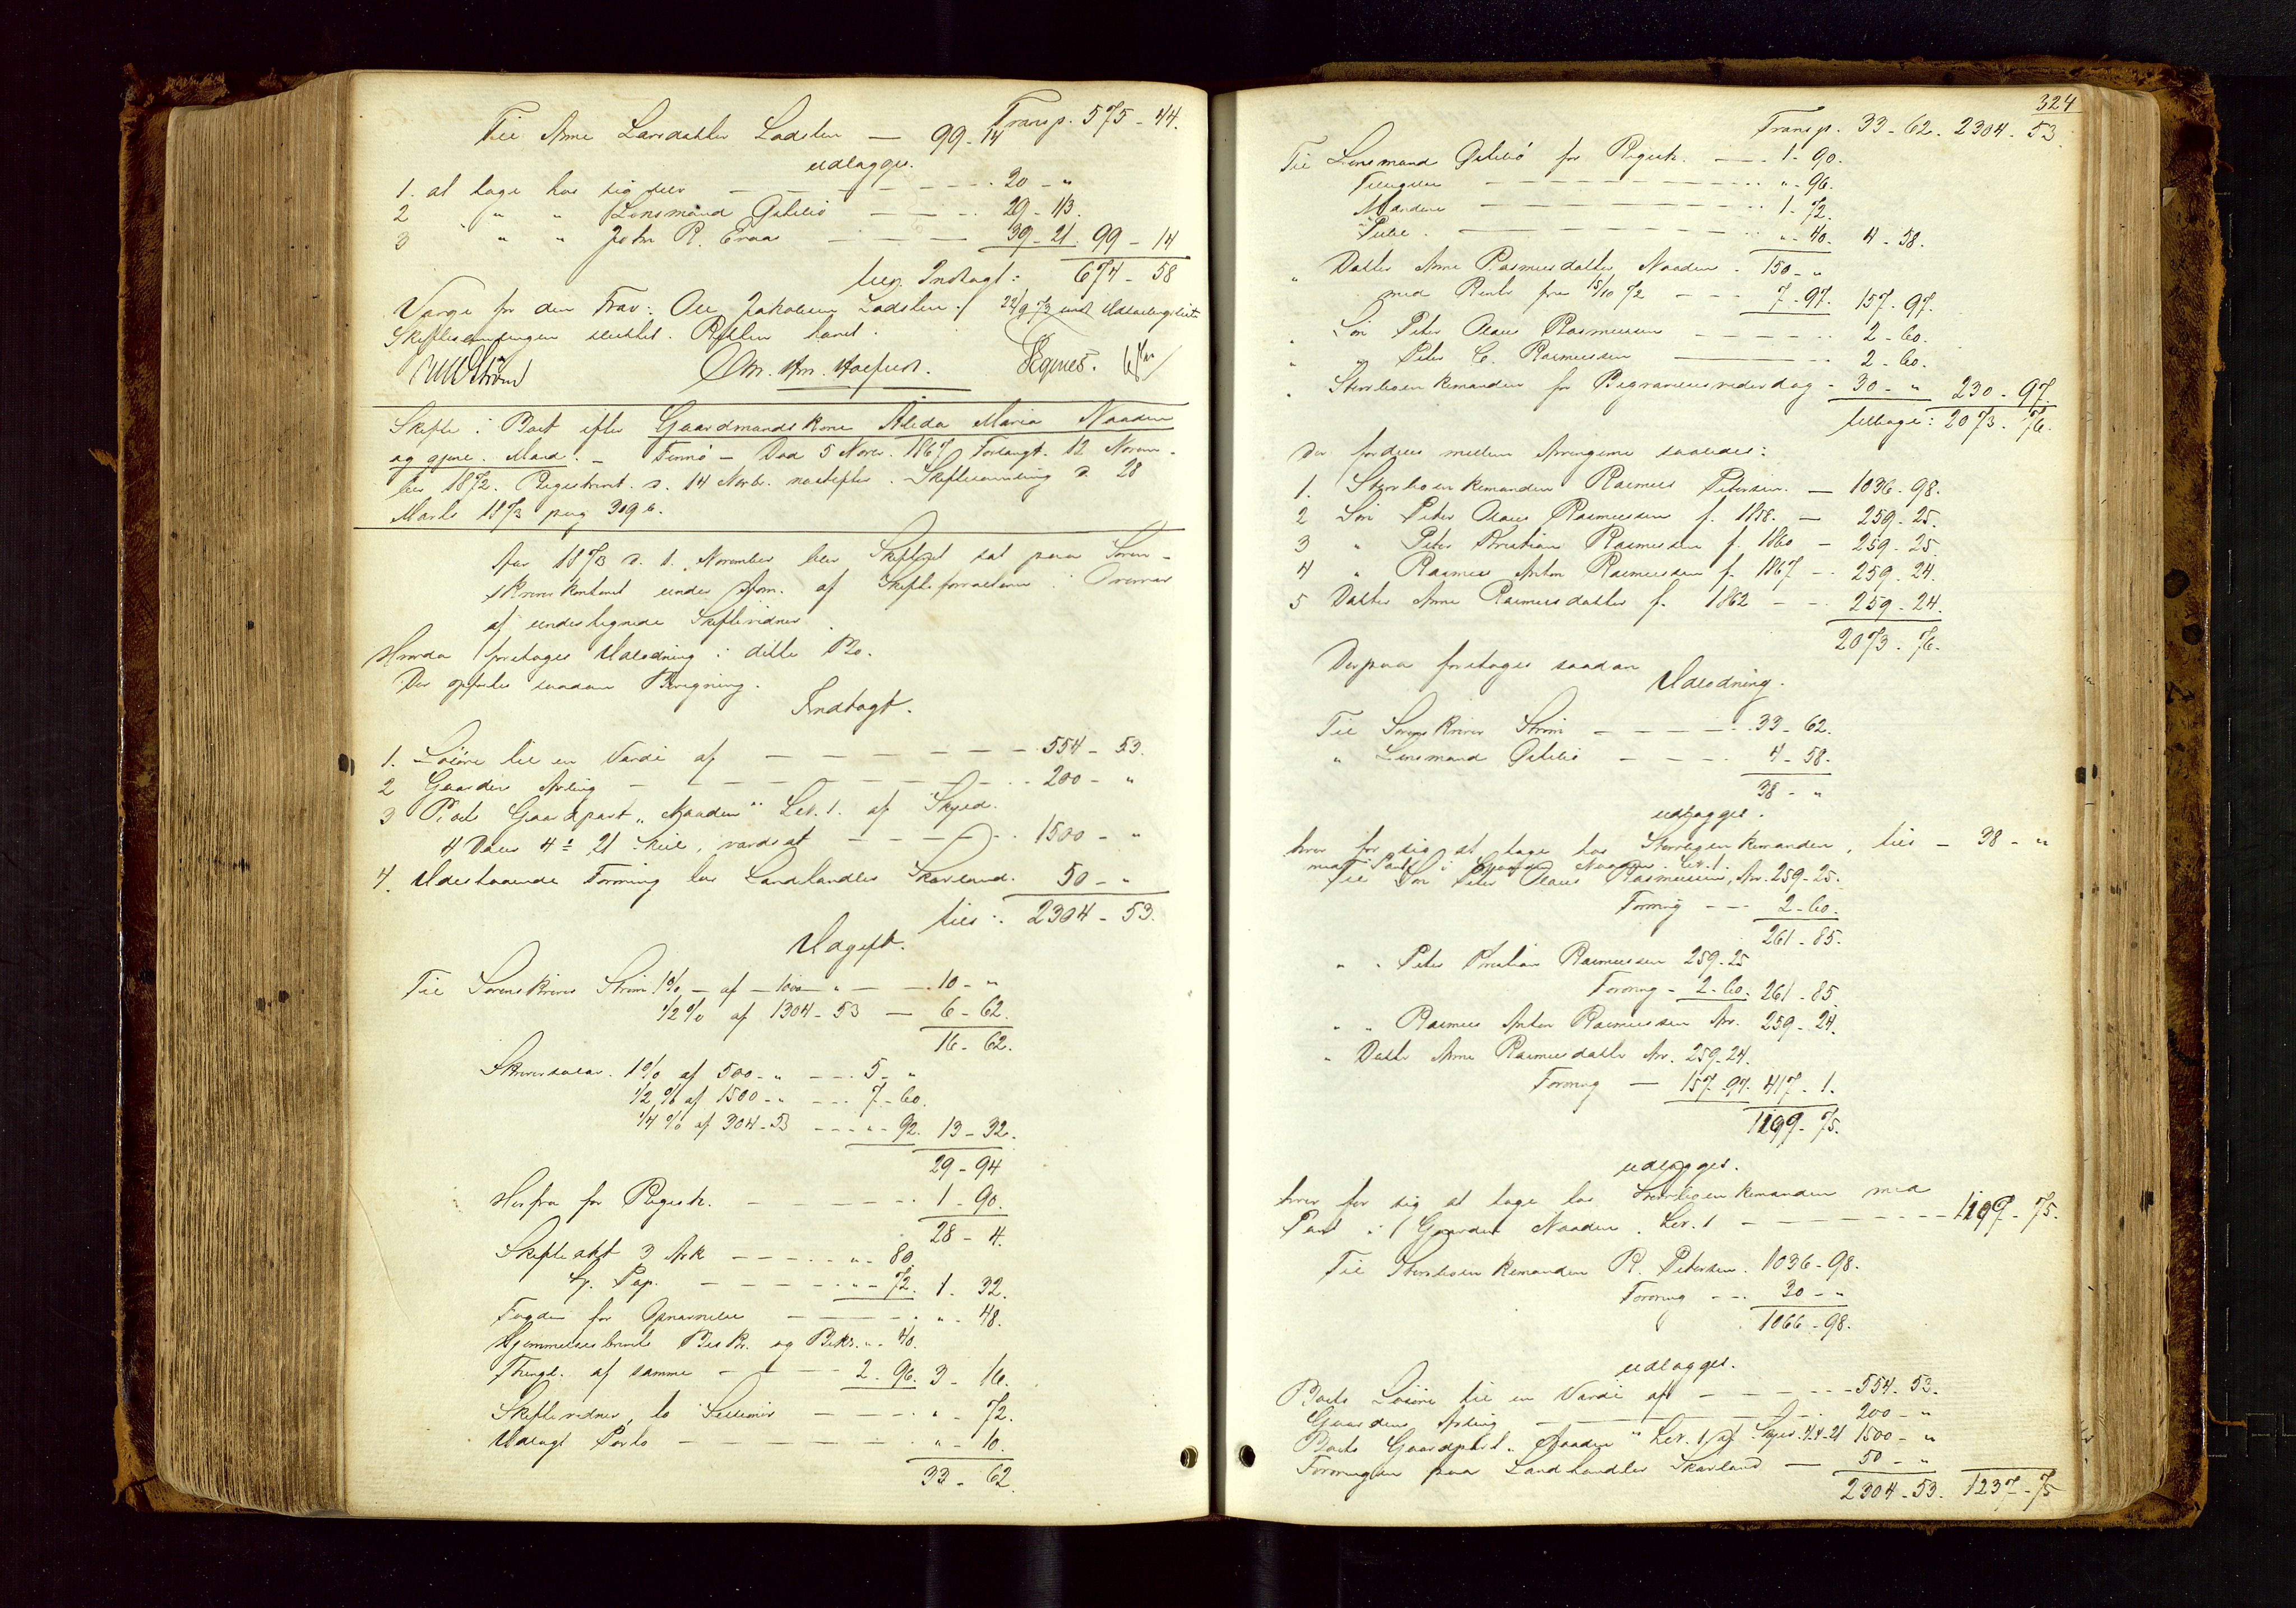 Transp. 575 - 44.
Til Anne Larsdatter Ladsten — 99 - 14
udlægges.
1. at tage hos sig selv — 20 - "
2 " " Lensmand Østebö — 29 - 113.
3 " " John R. Eraa — 39 - 21. 99 - 14
lig Indtægt: 674 - 58
Værge for den Frav: Ole Jakobsen Ladsten.
Skiftesamlingen sluttet. Retten hævet.
Skifte i Boet efter Gaardmandskone Aleda Maria Naaden
og gjenl. Mand. - Finnö - Död 5 Novr. 1867 Forlangt. 12 Novem-
ber 1872. Registreret. d. 14 Novbr. næstefter. Skiftesamling d. 28
Marts 1873 pag 309 b.
Aar 1873 d. 1. November blev Skiftet sat paa Soren-
skriverkontoret under Adm. af Skifteforvalteren i Overvær
af undertegnede Skiftevidner.
Hvorda foretages Udlodning i dette Bo.
Der opförtes saadan Beregning.
Indtægt.
1. Lösöre til en Værdi af — 554 - 53.
2 Gaardens Avling — 200 - "
3 Boets Gaardpart "Naaden" Lev. 1. af Skyld.
4 Daler 4 ort 21 Skil, værdsat — 1500 - "
4. Udestaaende Fordring hos Landhandler Skarland. 50 - "
tils: 2304 - 53.
Udgift.
Til Sorenskriver Ström 1% - af - 1000 - " — 10 - "
1/2 % af 1304 - 53 — 6 - 62.
16 - 62.
Skriversalær. 1% af 500 - " — 5 - "
1/2 % af 1500 - " — 7 - 60.
1/4 % af 304 - 53 — " - 92. 13 - 32.
29 - 94
Herfra for Registr. — 1 - 90.
28 - 4.
Skifteakt 3 Ark — " - 80.
St. Pap. — " - 72. 1. 32.
Fogden for Opnævnelse — " - 48.
Hjemmelsbrevets Beskr. og Bekr. " - 40.
Thingl. af samme — 2. 96. 3 - 16.
Skiftevidner, to Sessioner — " - 72.
Udlagt Porto — " - 10.
33 - 62.
324
Transp. 33 - 62. 2304 - 53.
Til Lensmand Østebö for Registr. — 1 - 90.
— " - 96.
— 1 - 72.
— " - 40. 4 - 58.
" Datter Anne Rasmusdatter Naaden. 150 - "
med Renter fra 15/10 72 — 7 - 97. 157 - 97.
" Sön Peter Olaus Rasmussen — 2 - 60.
" " Peter C. Rasmussen — 2 - 60.
" Stervboenkemanden for Begravelsesvederlag - 30 - " 230 - 97.
tilbage: 2073. 76.
Der fordeles mellem Arvingerne saaledes:
1. Stervboenkemanden Rasmus Petersen. — 1036 - 98.
2 Sön Peter Olaus Rasmussen f. 1858. — 259 - 25.
3 " Peter Kristian Rasmussen f. 1860 — 259 - 25.
4 " Rasmus Anton Rasmussen f. 1867 — 259 - 24.
5 Datter Anne Rasmusdatter f. 1862 — 259 - 24.
2073. 76.
Derpaa foretages saadan
Udlodning.
Til Sorenskriver Ström — 33 - 62.
" Lensmand Østebö — 4 - 58.
38 - "
udlægges.
hver for sig at tage hos Stervboenkemanden, tils — 38 - "
med Pant i Gaarden Naaden. Lev. 1.
Til Sön Peter Olaus Rasmussen, Arv. 259 - 25.
Fordring — 2 - 60.
261 - 85.
" " Peter Kristian Rasmussen 259 - 25
Fordring - 2 - 60. 261 - 85.
" " Rasmus Anton Rasmussen Arv. 259 - 24.
" Datter Anne Rasmusdatter Arv. 259 - 24.
Fordring — 157 - 97. 417 - 1.
1199 - 75.
udlægges.
hver for sig at tage hos Stervboenkemanden med
Pant i Gaarden Naaden. Lev. 1 — 1199 - 75.
Til Stervboenkemanden R. Petersen. 1036 - 98.
Fordring — 30 - "
1066 - 98.
udlægges.
Boets Lösöre til en Værdi af — 554 - 53.
Gaardens Avling — 200 - "
Boets Gaardpart "Naaden" Lev. 1 af Skyld. 4. 4 - 21 1500 - "
Fordringen paa Landhandler Skarland — 50 - "
2304 - 53. 1237 - 75